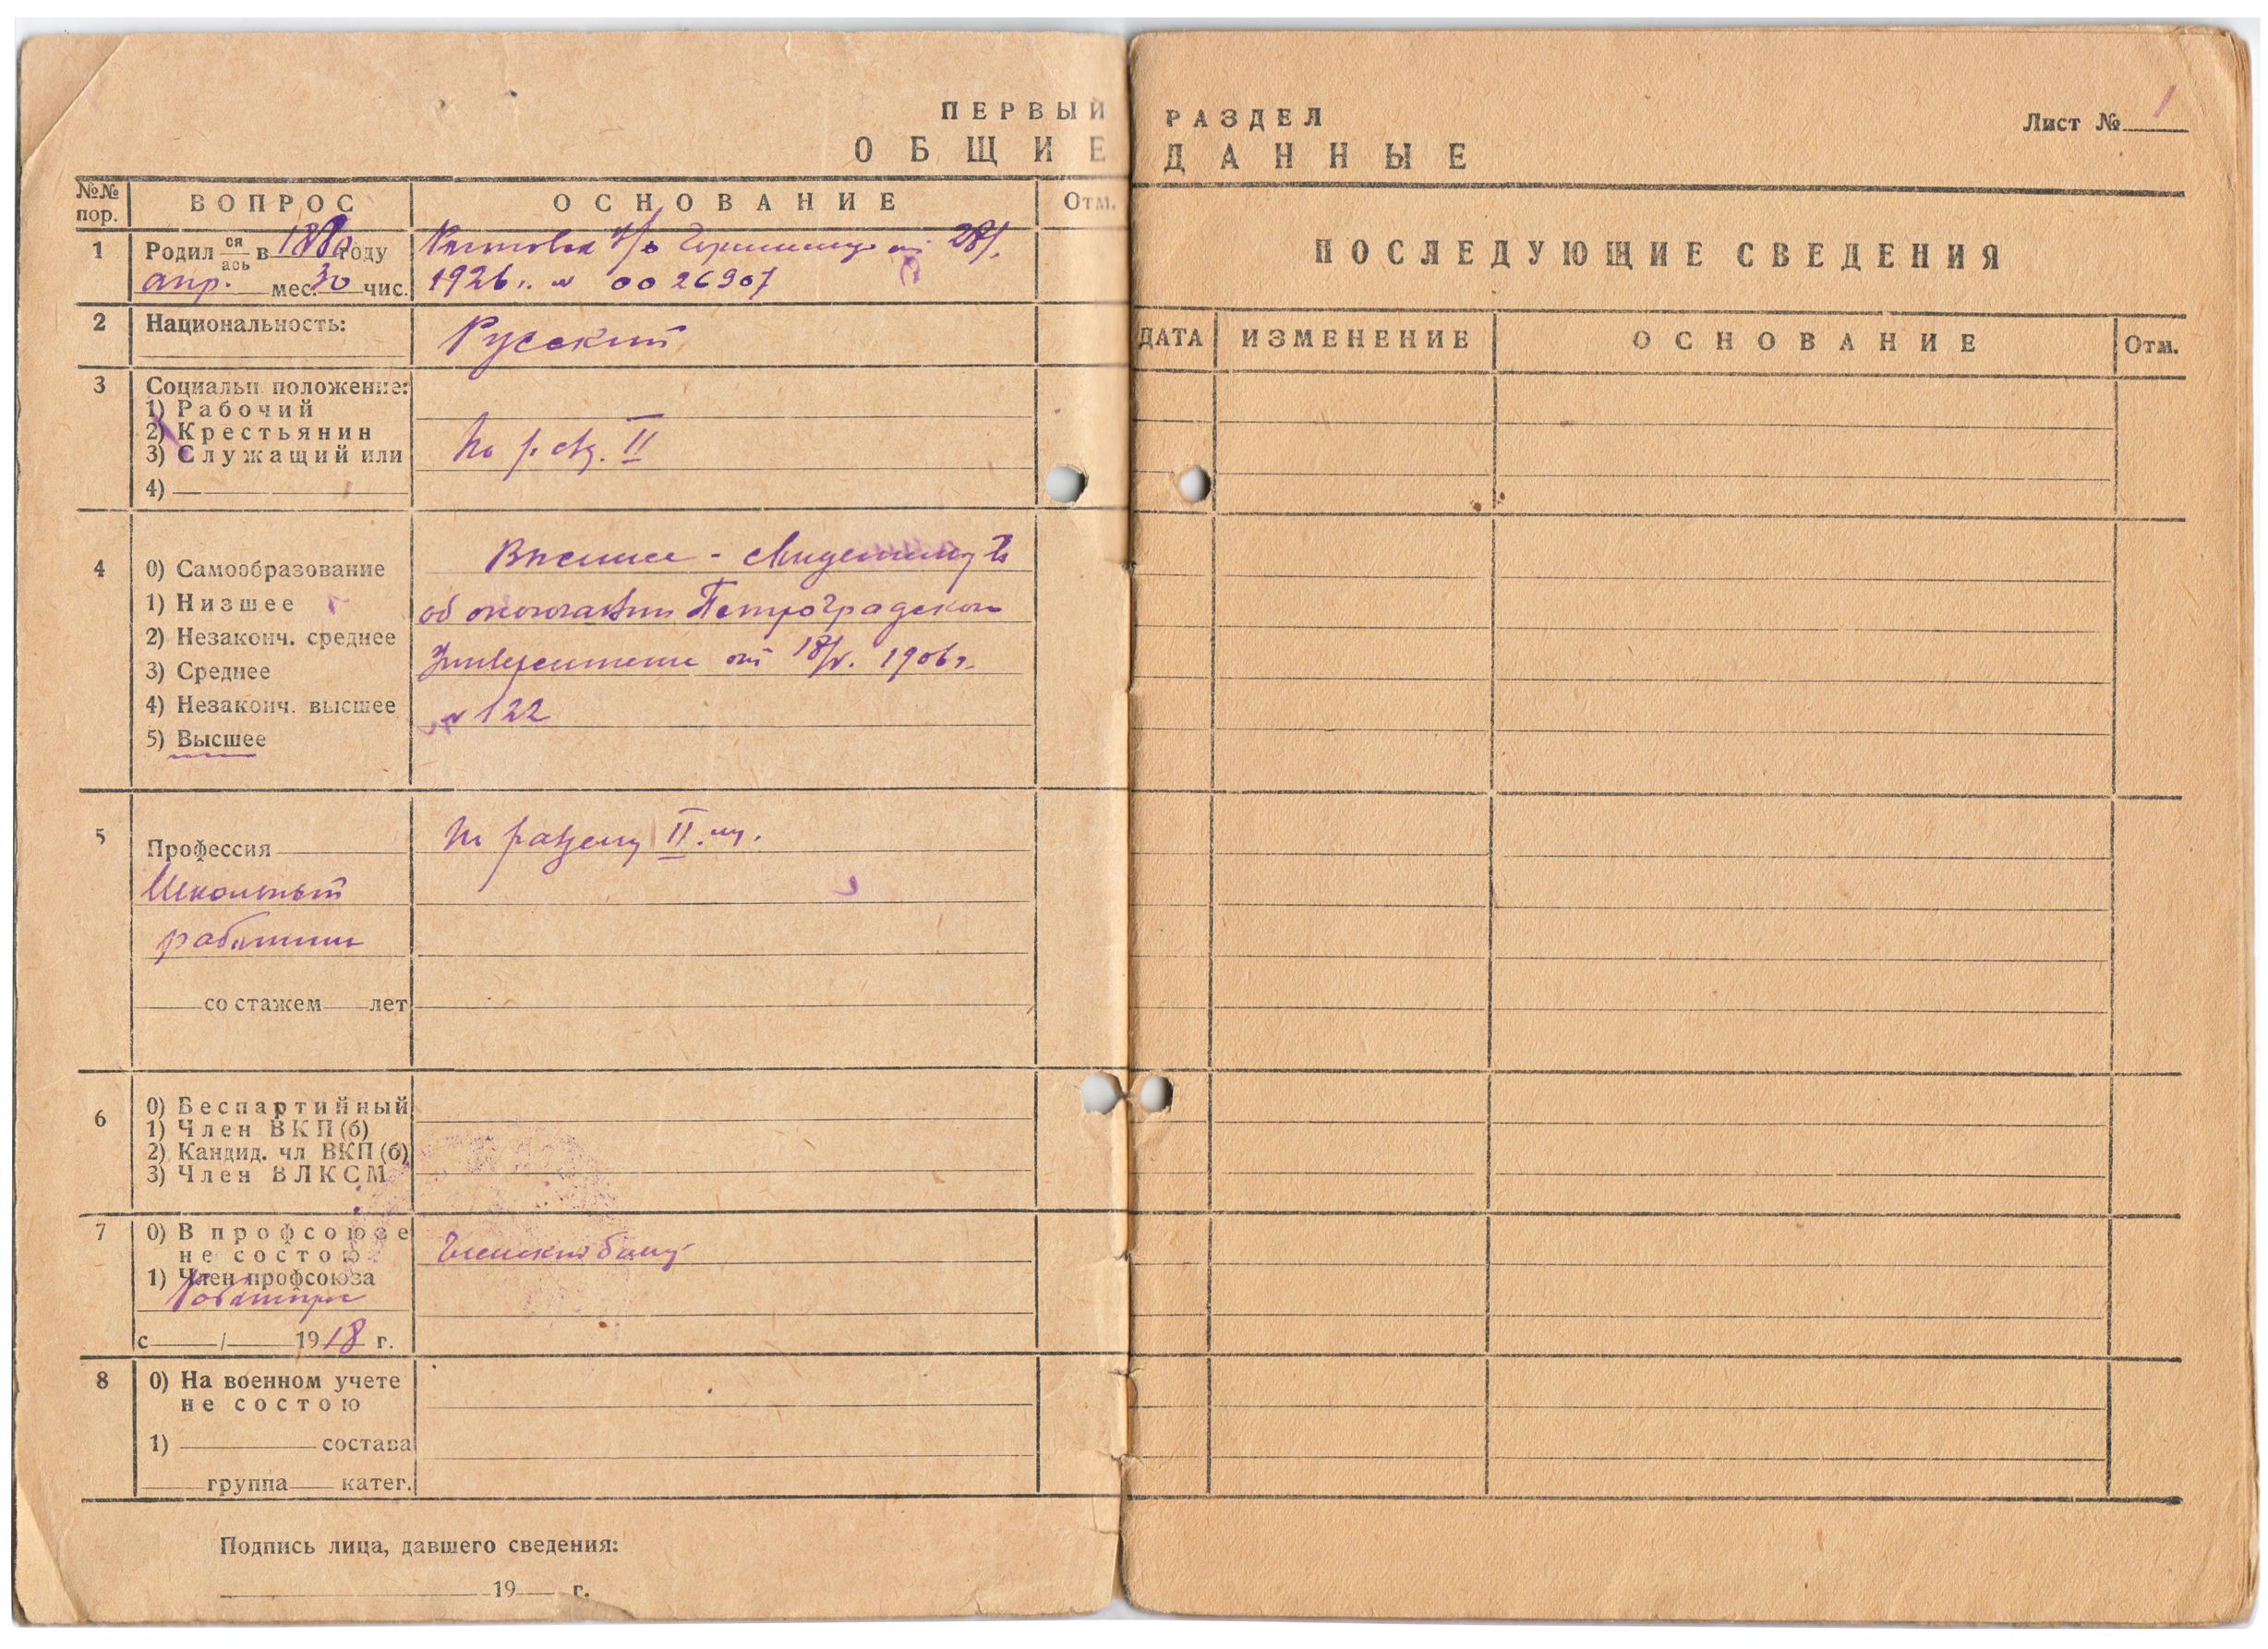 ПЕРВЫЙ РАЗДЕЛ
ОБЩИЕ ДАННЫЕ
Лист № 1
№№ пор.
ВОПРОС
ОСНОВАНИЕ
Отм.
ПОСЛЕДУЮЩИЕ СВЕДЕНИЯ
ДАТА
ИЗМЕНЕНИЕ
ОСНОВАНИЕ
Отм.
1
Родил ся ась в году
апр. мес. 30 чис.
1926 г. № 0026907
2
Национальность:
Русский
3
Социальн положение:
1) Рабочий
2) Крестьянин
3) Служащий или
4)
По II
4
0) Самообразование
1) Низшее
2) Незаконч. среднее
3) Среднее
4) Незаконч. высшее
5) Высшее
Высшее -
об окончании Петроградского
Университета от 18/V. 1906 г.
№ 122
5
Профессия
Школьный
работник
со стажем лет
По разделу II.
6
0) Беспартийный
1) Член ВКП(б)
2) Кандид. чл ВКП(б)
3) Член ВЛКСМ
7
0) В профсоюзе
не состою
1) Член профсоюза
Рабпрос
с / 1918 г.
Членский билет
8
0) На военном учете
не состою
1) состава
группа катег.
Подпись лица, давшего сведения:
19 г.